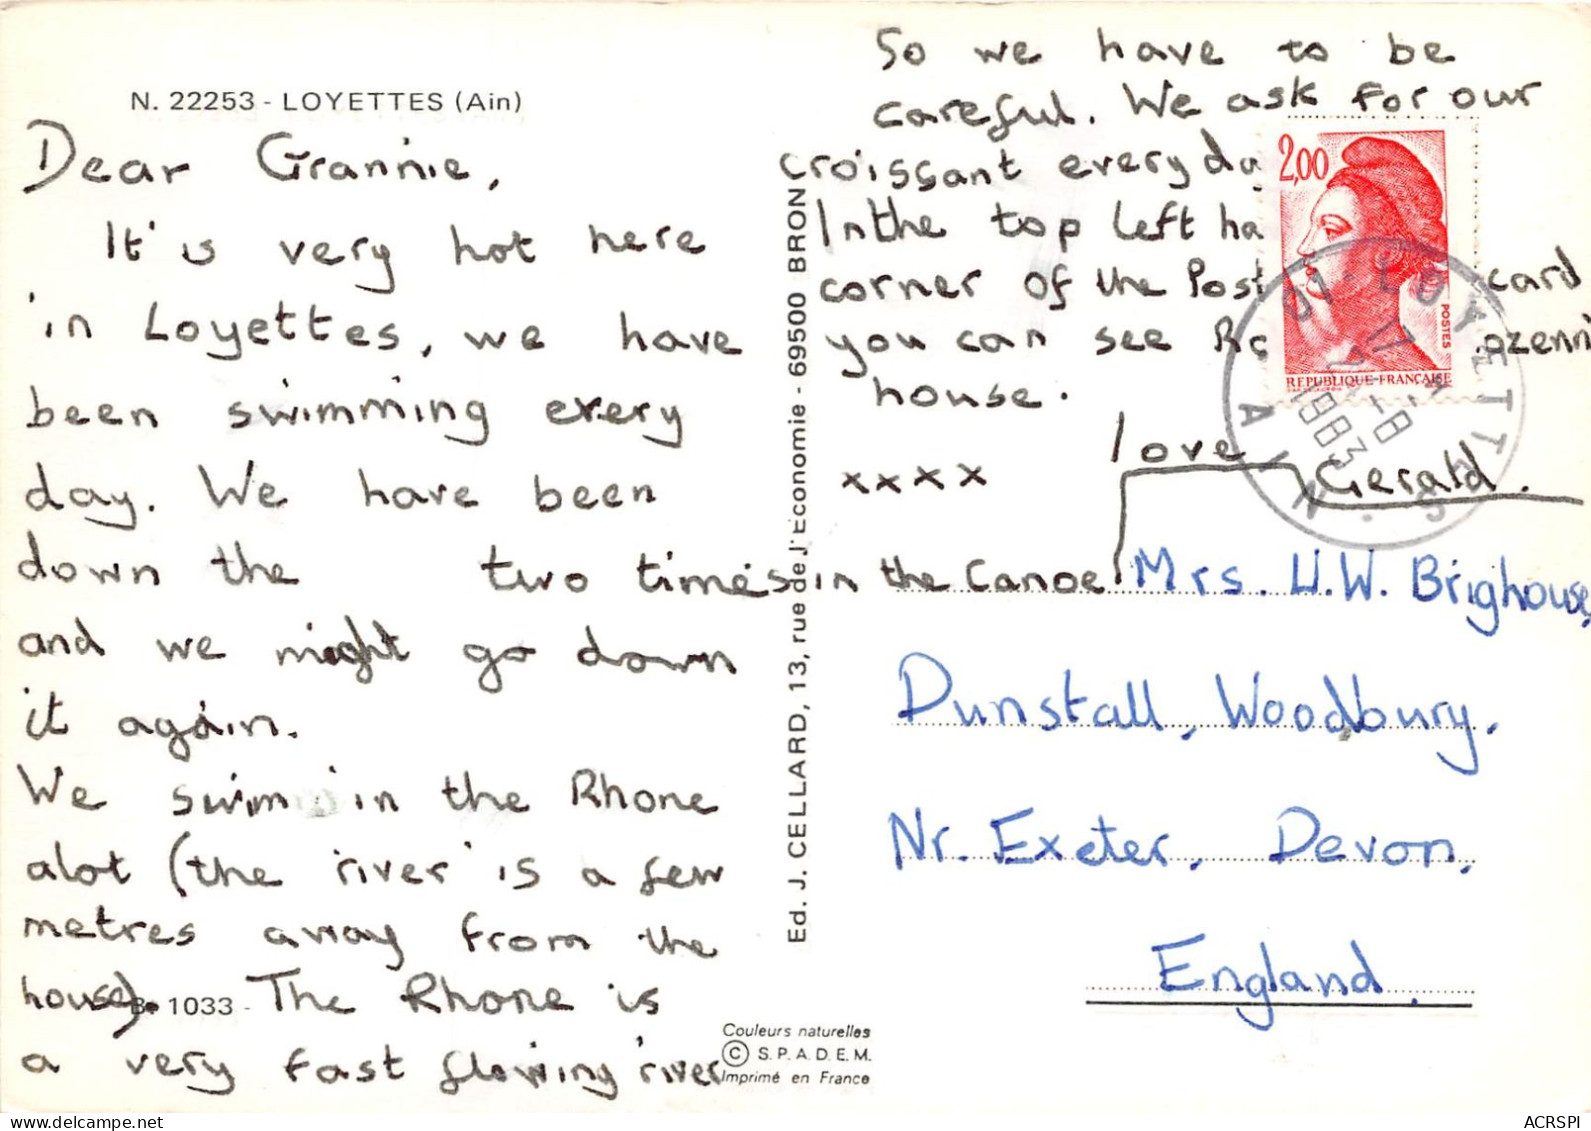 N. 22253 - LOYETTES (Ain)
Dear Grannie,
It's very hot here
in Loyettes, we have
been swimming every
day. We have been
down the two times in the Canoe
and we might go down
it again.
We swim in the Rhone
alot (the river is a few
metres away from the
house). The Rhone is
a very fast flowing river
B. 1033 -
So we have to be
careful. We ask for our
croissant every da
In the top left ha
corner of the Post card
you can see
house.
love
xxxx Gerald.
Ed. J. CELLARD, 13, rue de l'Economie - 69500 BRON
Couleurs naturelles
© S.P.A.D.E.M.
Imprimé en France
2,00
POSTES
REPUBLIQUE FRANÇAISE
01 · LOYETTES
17
-8
1983
AIN
Mrs. W. Brighouse,
Dunstall, Woodbury,
Nr. Exeter, Devon,
England.
ACRSPI